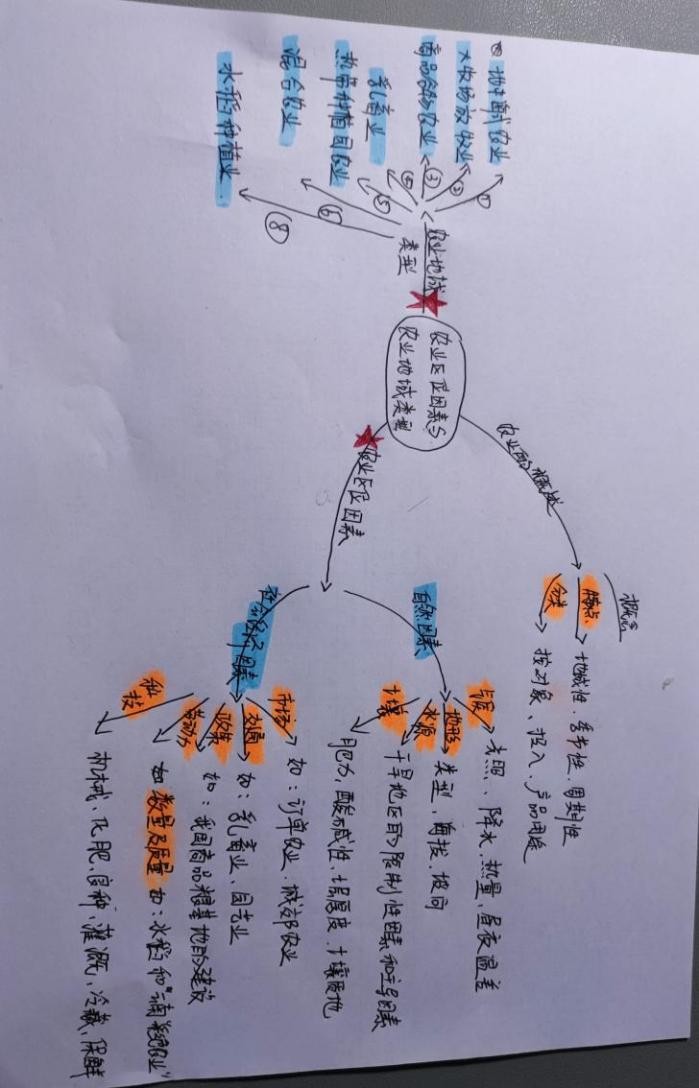 农业区位因素与
农业地域类型
农业的概述
概念
特点
地域性、季节性、周期性
分类
按对象、投入、产品用途
农业区位因素
自然因素
气候
光照、降水、热量、昼夜温差
地形
类型、海拔、坡向
水源
干旱地区的限制性因素和主导因素
土壤
肥力、酸碱性、土层厚度、土壤质地
社会经济因素
市场
如：订单农业、城郊农业
交通
如：乳畜业、园艺业
政策
如：我国商品粮基地的建设
劳动力
如数量及质量 如：水稻和
科技
机械、化肥、良种、灌溉、冷藏、保鲜
农业地域
类型
① 地中海式农业
② 大牧场放牧业
③ 商品谷物农业
④ 乳畜业
⑤ 热带种植园农业
⑥ 混合农业
⑧ 水稻种植业